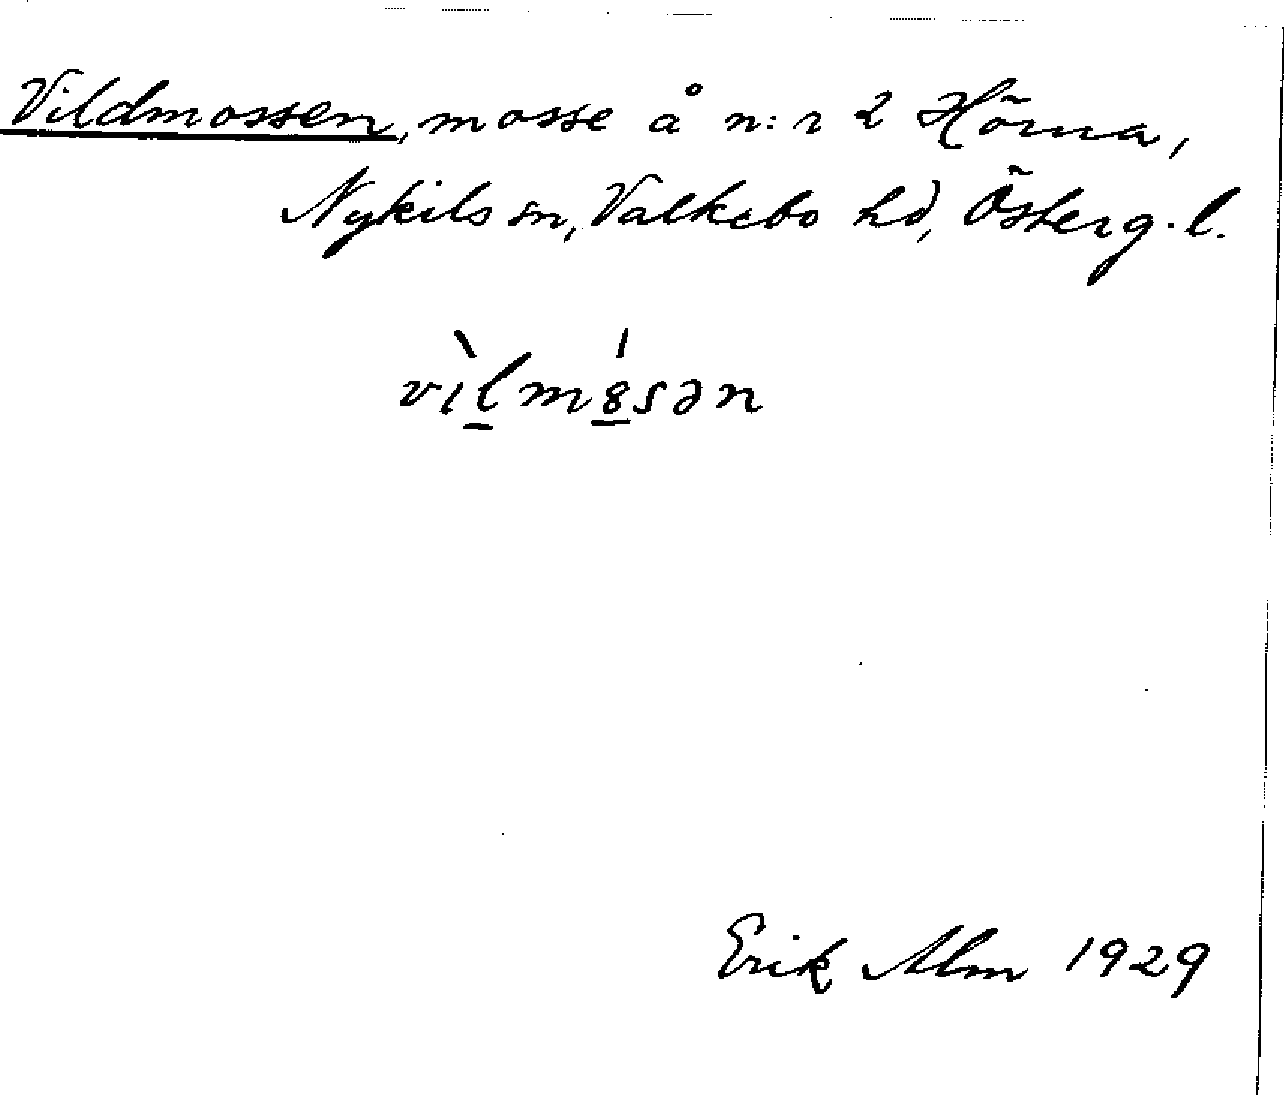 Vildmossen, mosse å n:r 2 Hörna,
Nykils sn, Valkebo hd, Österg. l.
vìlm8́sən
Erik Alm 1929